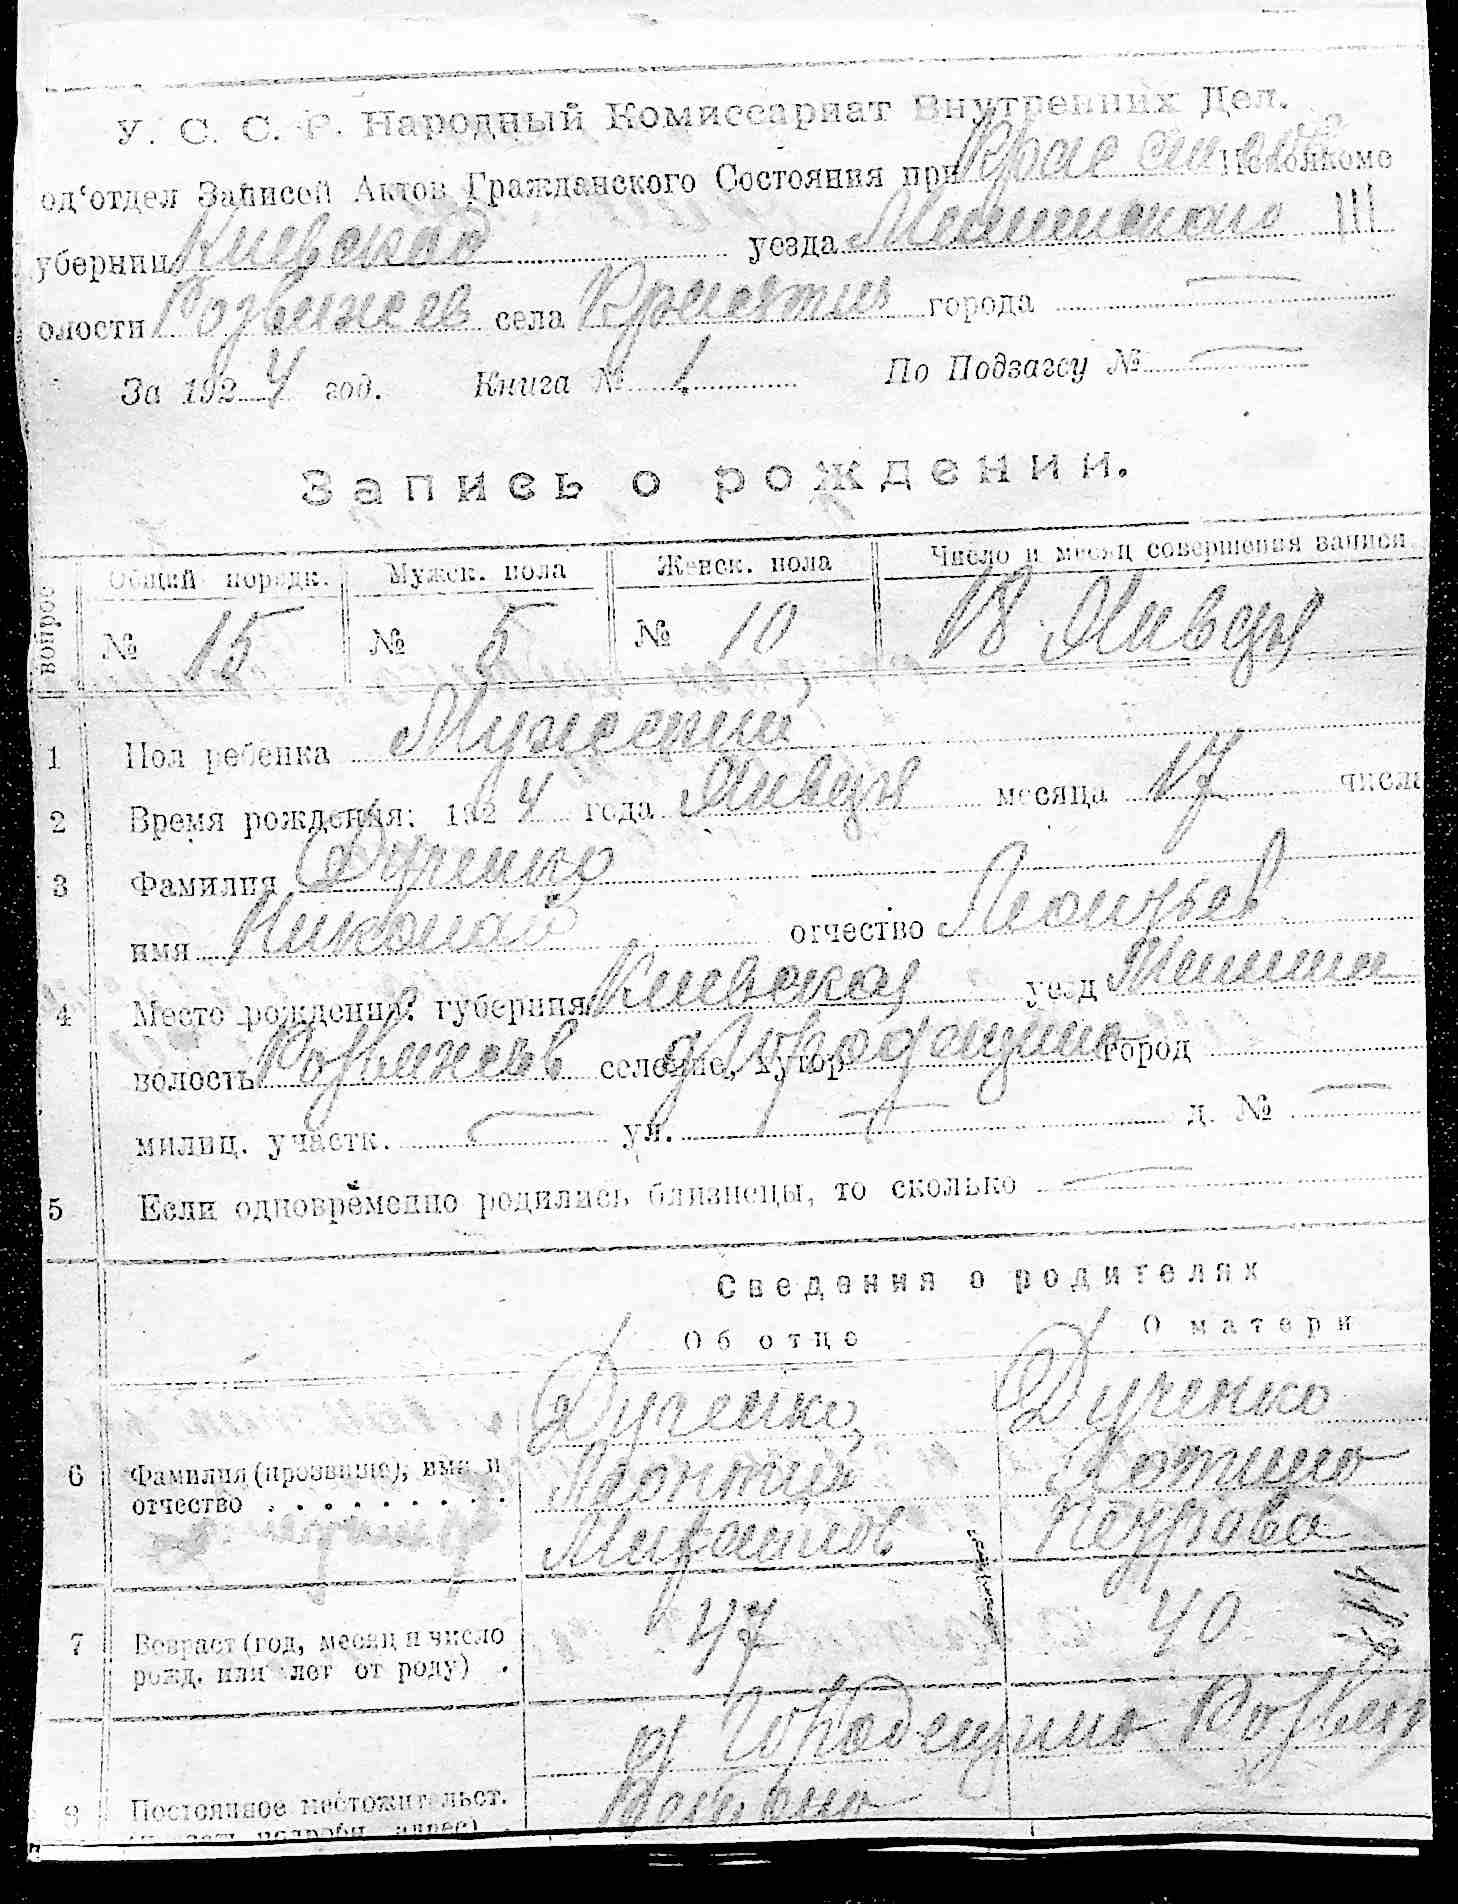 У. С. С. Р. Народный Комиссариат Внутренних Дел.
од'отдел Записей Актов Гражданского Состояния при Исполкоме
убернии Киевской уезда
олости села города —
За 1924 год. Книга № 1 По Подзагсу № —
Запись о рождении.
вопрос Общий порядк. Мужск. пола Женск. пола Число и месяц совершения записи
№ 15 № 5 № 10 18 Января
1 Пол ребенка Мужеский
2 Время рождения: 1924 года Января месяца 17 числа
3 Фамилия Дученко
имя Николай отчество Леонтьев
4 Место рождения: губерния Киевская уезд
волость селение, хутор город
милиц. участк. — ул. — д. № —
5 Если одновременно родились близнецы, то сколько —
Сведения о родителях
Об отце О матери
Дученко Дученко
6 Фамилия (прозвище), имя и Леонтий
отчество . . . . . . . . . Михайлов Петрова
7 Возраст (год, месяц и число 47 40
рожд. или лет от роду) .
8 Постоянное местожительст.